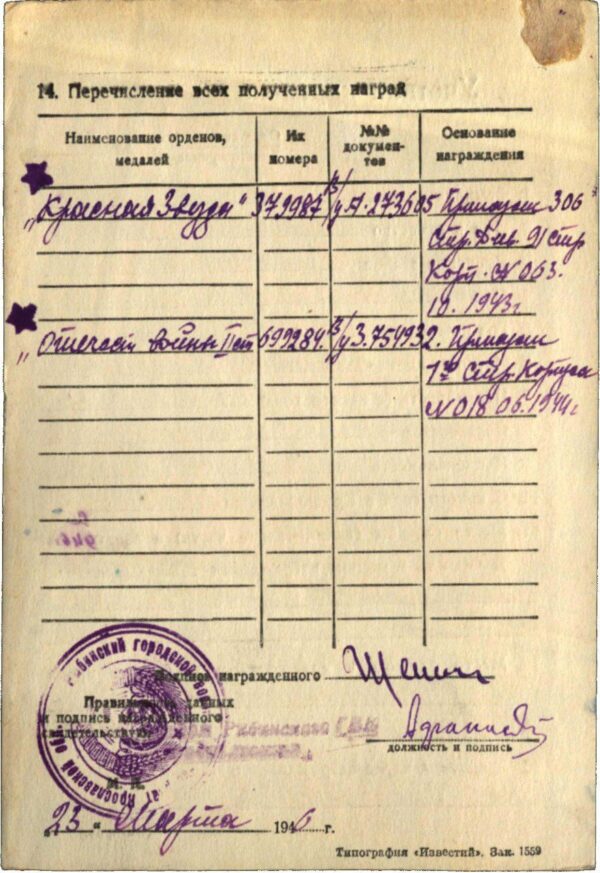 14. Перечисление всех полученных наград
Наименование орденов, медалей
Их номера
№№ документов
Основание награждения
„Красная Звезда" 379987 У.А. 273605 Приказом 306
Стр. Див. 91 Стр
Корп. № 063.
10. 1943г
„Отечеств войны II ст 699284. 754932. Приказом
1го Стр. Корпуса
№ 018 06. 1944г
Подпись награжденного
Правильность данных
и подпись награжденного
свидетельствую
Рыбинского ГВК
должность и подпись
М. П.
„23" Марта 1946 г.
Типография «Известий». Зак. 1559